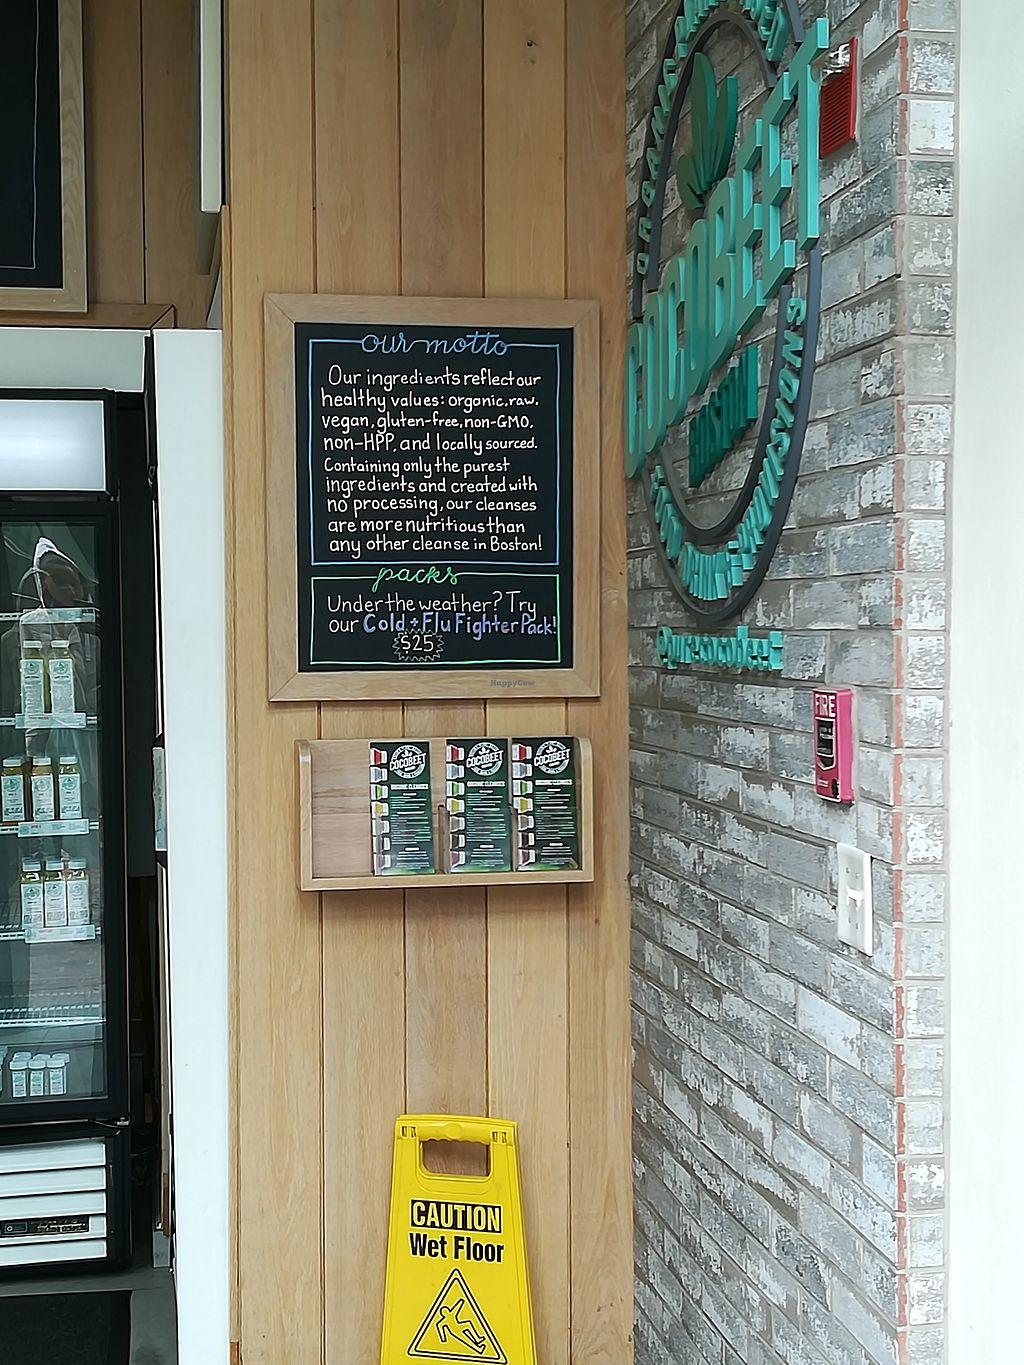 our motto
Our ingredients reflect our
healthy values: organic, raw,
vegan, gluten-free, non-GMO,
non-HPP, and locally sourced.
Containing only the purest
ingredients and created with
no processing, our cleanses
are more nutritious than
any other cleanse in Boston!
packs
Under the weather? Try
our Cold + Flu Fighter Pack!
$25
HappyCow
COCOBEET
@purecocobeet
FIRE
COCOBEET
COCOBEET
COCOBEET
CAUTION
Wet Floor